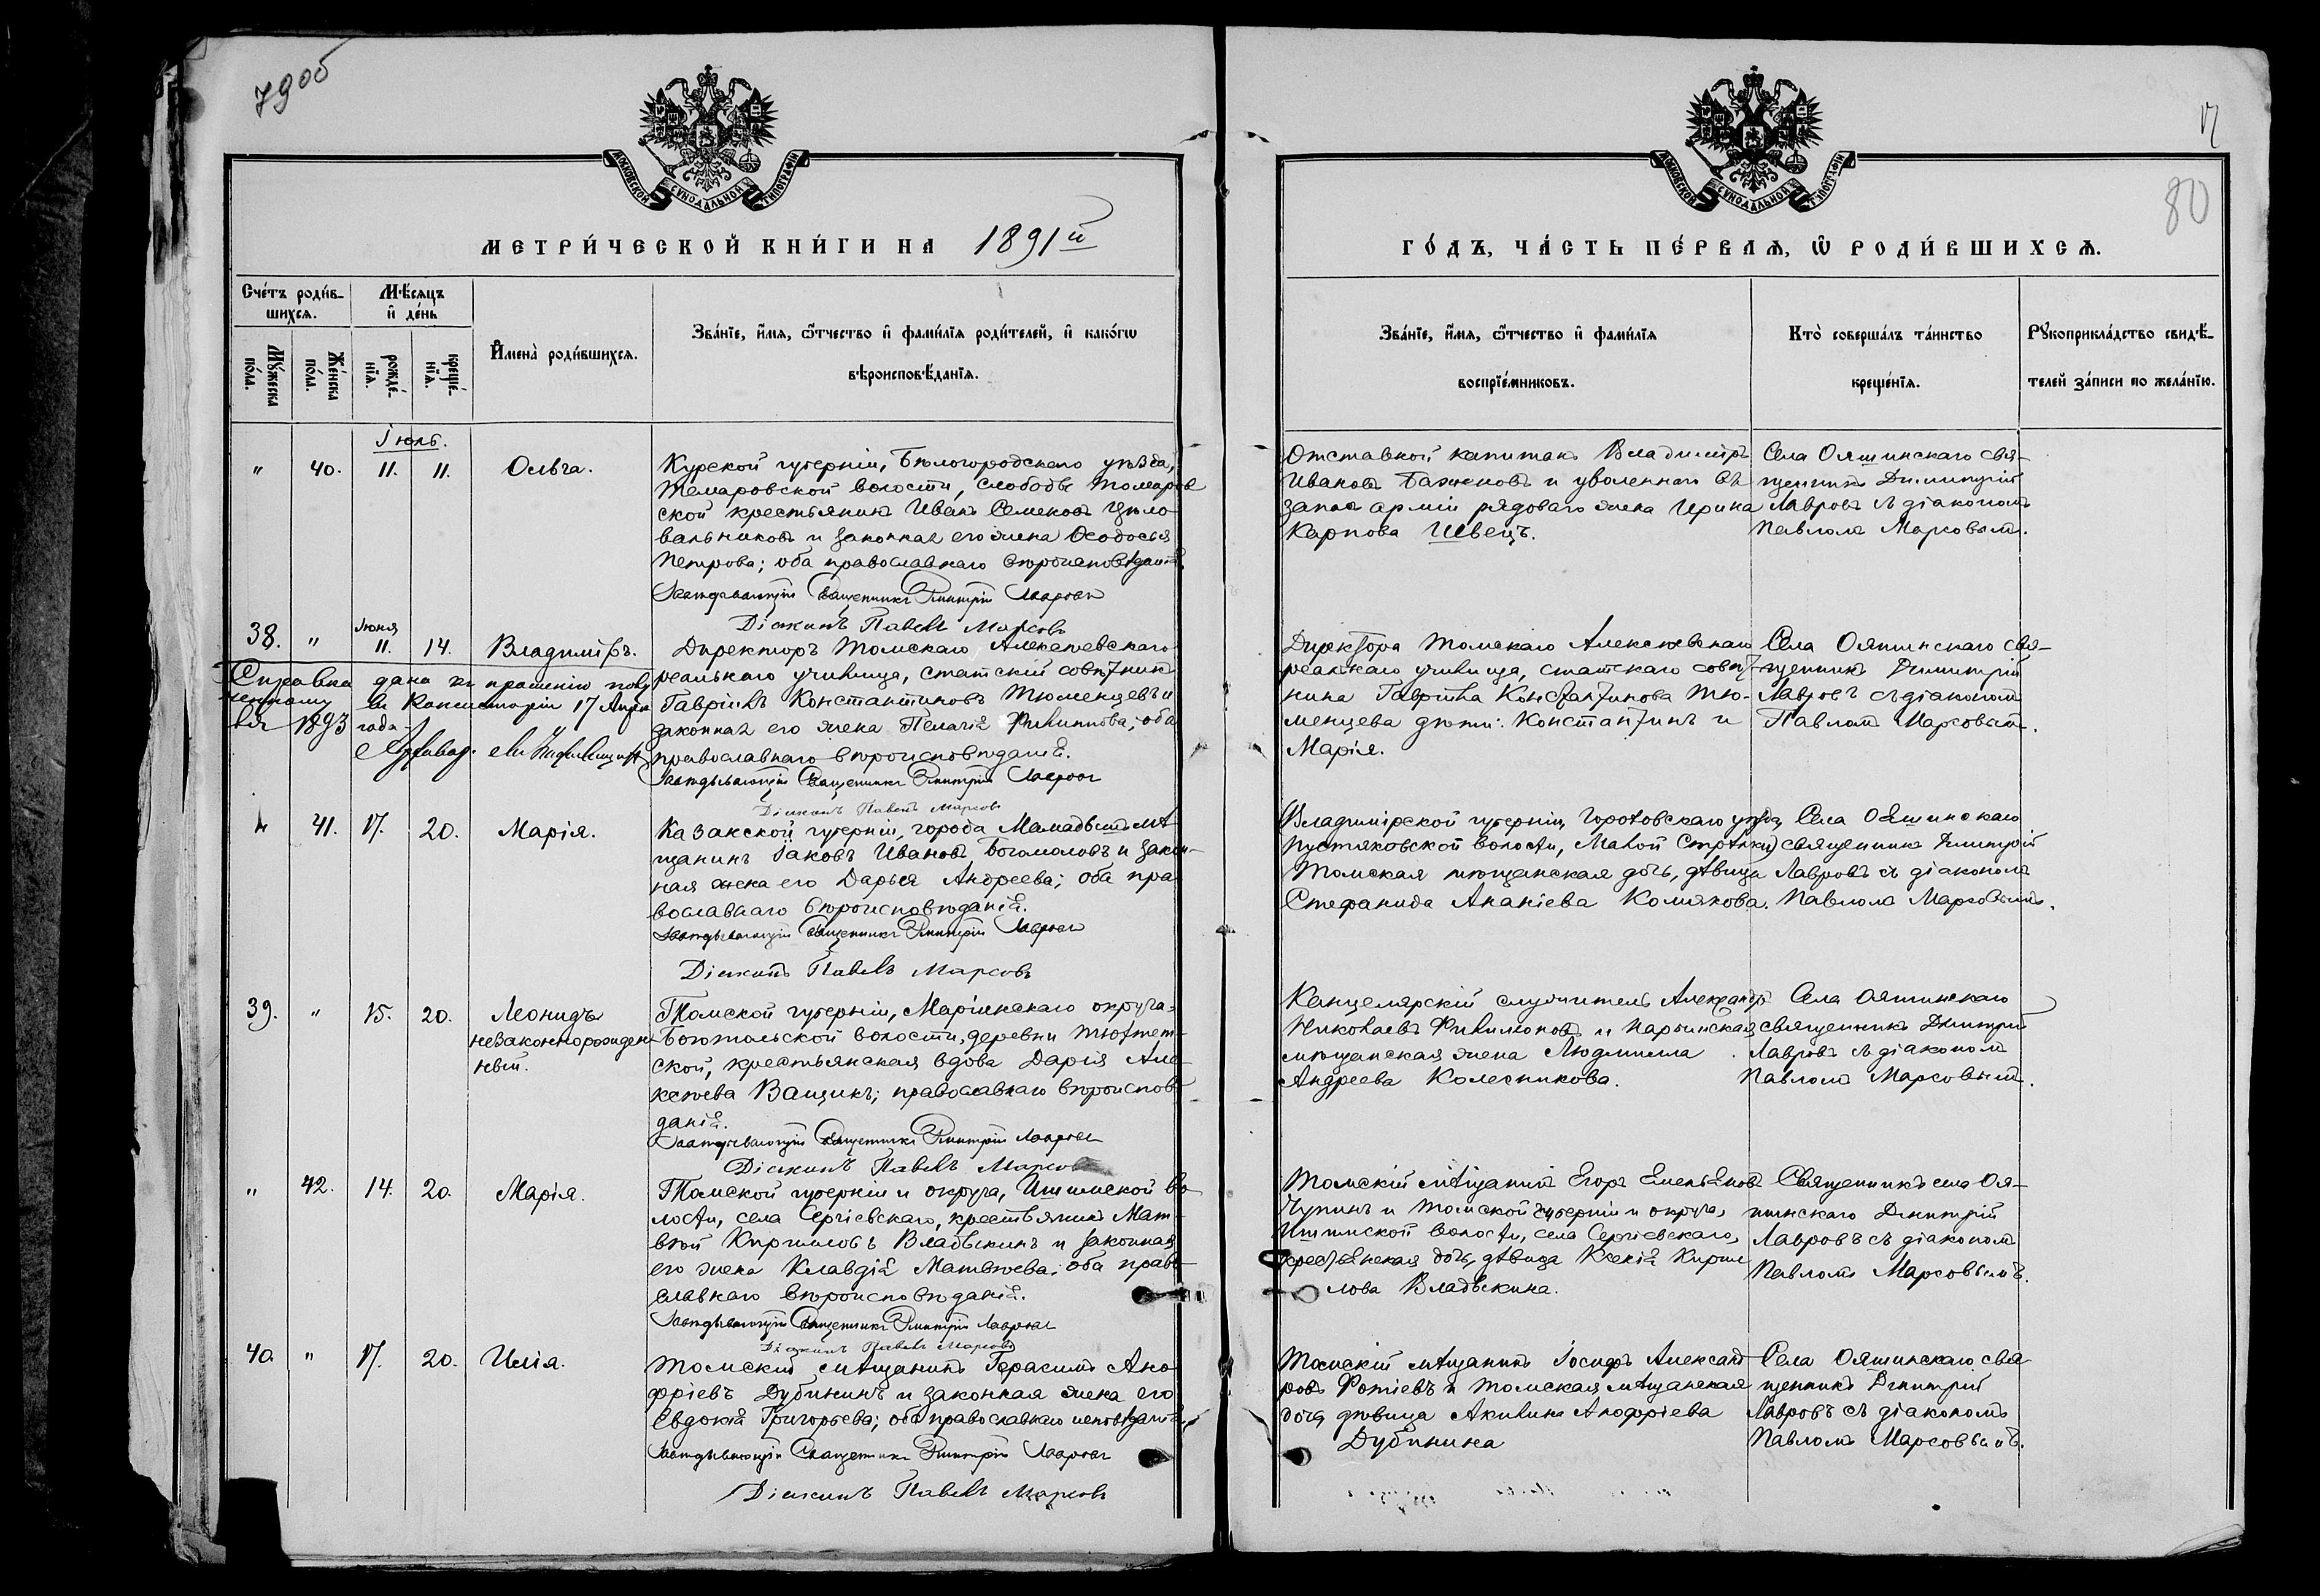 79об
МОСКОВСКОЙ СУНОДАЛЬНОЙ ТИПОГРАФІИ
МЕТРИ́ЧЕСКОЙ КНИ́ГИ НА 1891й
Сче́тъ роди́в-
шихся.
Мѣ́сяцъ
и҆ де́нь
Мꙋ́жеска
по́ла.
Же́нска
по́ла.
рожде́-
нїя.
креще́-
нїя.
И҆мена̀ роди́вшихся.
Зва́нїе, и҆́мя, ѻ҆́тчество и҆ фами́лїя роди́телей, и҆ како́гѡ
вѣроисповѣ́данїя.
Іюль.
" 40. 11. 11. Ольга.
Курской губерніи, Бѣлогородскаго уѣзда,
Томаровской волости, слободы Томаров
ской крестьянинъ Иванъ Семеновъ Цѣло
вальниковъ и законная его жена Ѳеодосья
Петрова; оба православнаго вѣроисповѣданія.
Завѣдывающій Священникъ Димитрій Лавровъ
Діаконъ Павелъ Марсовъ
38. " Іюня 11. 14. Владиміръ.
Директоръ Томскаго Алексѣевскаго
реальнаго училища, статскій совѣтникъ
Гавріилъ Константиновъ Тюменцевъ и
законная его жена Пелагія Филиппова; оба
православнаго вѣроисповѣданія.
Завѣдывающій Священникъ Димитрій Лавровъ
Діаконъ Павелъ Марсовъ
Справка дана по прошенію
въ Консисторіи 17
1893 года
" 41. 17. 20. Марія.
Казанской губерніи, города Мамадышъ мѣ
щанинъ Іаковъ Ивановъ Богомоловъ и закон-
ная жена его Дарья Андреева; оба пра
вославнаго вѣроисповѣданія.
Завѣдывающій Священникъ Димитрій Лавровъ
Діаконъ Павелъ Марсовъ
39. " 15. 20. Леонидъ
незаконнорожден
ный.
Томской губерніи, Маріинскаго округа,
Боготольской волости, деревни Тюхтет-
ской, крестьянская вдова Дарія Але-
ксѣева Ващикъ; православнаго вѣроисповѣ
данія.
Завѣдывающій Священникъ Димитрій Лавровъ
Діаконъ Павелъ Марсовъ
" 42. 14. 20. Марія.
Томской губерніи и округа, Ишимской во
лости, села Сергіевскаго, крестьянинъ Мат-
вѣй Кириловъ Владыкинъ и законная
его жена Клавдія Матвѣева; оба право
славнаго вѣроисповѣданія.
Завѣдывающій Священникъ Димитрій Лавровъ
Діаконъ Павелъ Марсовъ
40 " 17. 20. Илія.
Томскій мѣщанинъ Герасимъ Ано
фріевъ Дубининъ и законная жена его
Евдокія Григорьева; оба православнаго исповѣданія.
Завѣдывающій Священникъ Димитрій Лавровъ
Діаконъ Павелъ Марсовъ
17
80
МОСКОВСКОЙ СУНОДАЛЬНОЙ ТИПОГРАФІИ
ГО́ДЪ, ЧА́СТЬ ПЕ́РВАѦ, Ѡ҆ РОДИ́ВШИХСѦ.
Зва́нїе, и҆́мя, ѻ҆́тчество и҆ фами́лїя
воспрїе́мниковъ.
Кто̀ соверша́лъ та́инство
креще́нїя.
Рꙋкоприкла́дство свидѣ́-
телей за́писи по жела́нїю.
Отставной капитанъ Владиміръ
Ивановъ Баженовъ и уволеннаго въ
запасъ арміи рядоваго жена Ирина
Карпова Швецъ.
Села Ояшинскаго свя-
щенникъ Димитрій
Лавровъ съ діакономъ
Павломъ Марсовымъ.
Директора Томскаго Алексѣевскаго
реальнаго училища, статскаго совѣт-
ника Гавріила Константинова Тю-
менцева дѣти: Константинъ и
Марія.
Села Ояшинскаго свя-
щенникъ Димитрій
Лавровъ съ діакономъ
Павломъ Марсовымъ.
(Владимірской губерніи, Гороховскаго уѣзда,
Пустяковской волости, Малой
Томская мѣщанская дочь, дѣвица
Стефанида Ананіева Комякова.
Села Ояшинскаго
священникъ Димитрій
Лавровъ съ діакономъ
Павломъ Марсовымъ.
Канцелярскій служитель Александръ
Николаевъ Филимоновъ и Нарымская
мѣщанская жена Людмилла
Андреева Колесникова.
Села Ояшинскаго
священникъ Димитрій
Лавровъ съ діакономъ
Павломъ Марсовымъ.
Томскій мѣщанинъ Егоръ Емельяновъ
Чупинъ и Томской губерніи и округа,
Ишимской волости, села Сергіевскаго,
крестьянская дочь, дѣвица Ксенія Кирил
лова Владыкина.
Священникъ села Оя-
шинскаго Димитрій
Лавровъ съ діакономъ
Павломъ Марсовымъ.
Томскій мѣщанинъ Іосифъ Александ
ровъ Фотіевъ и Томская мѣщанская
дочь дѣвица Акилина Анофріева
Дубинина
Села Ояшинскаго свя
щенникъ Димитрій
Лавровъ съ діакономъ
Павломъ Марсовымъ.